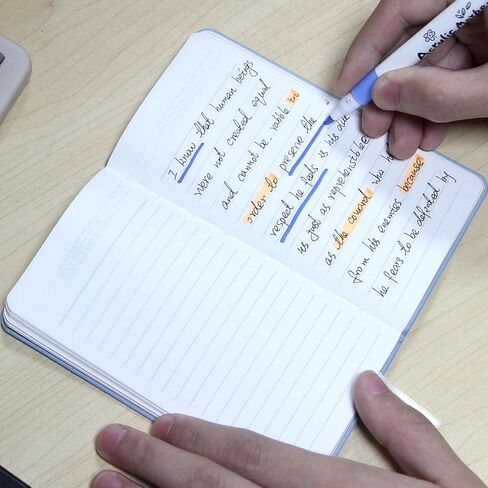 I know that human beings
were not created equal
and cannot be
order to preserve the
respect he feels is his due
is just as
as the coward who
from his because
he fears to be defeated by
Acrylic